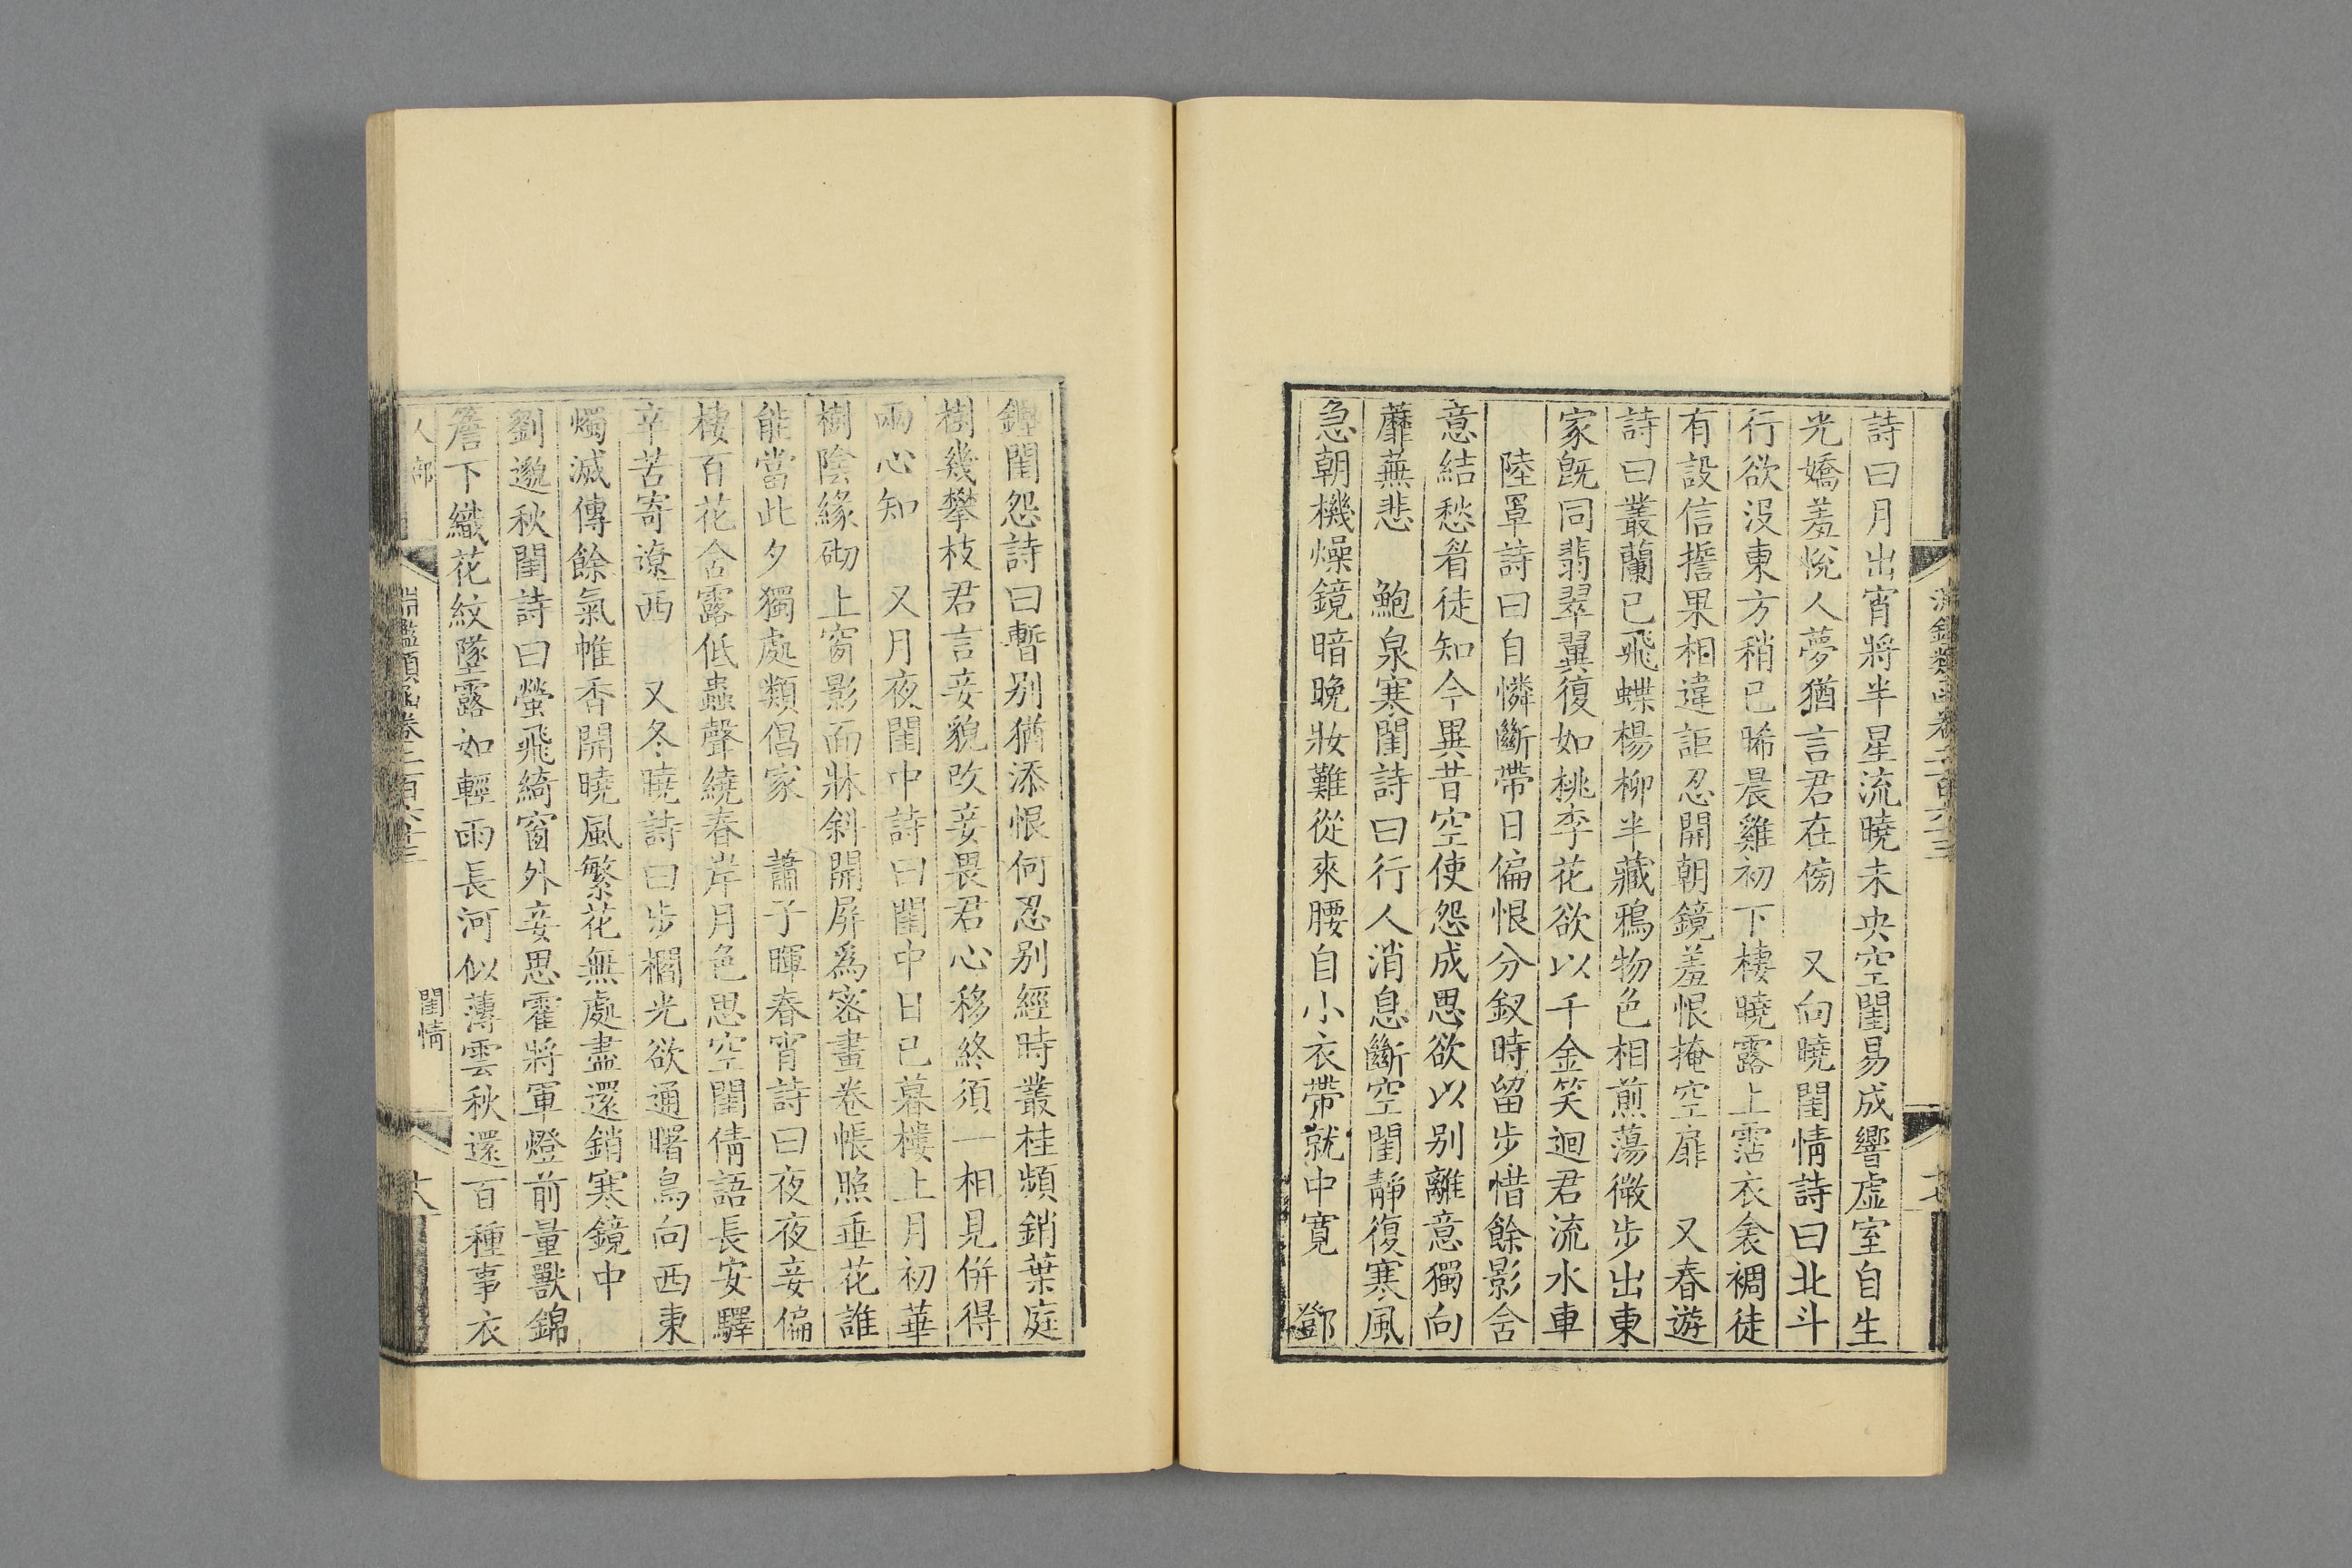 詩曰月出宵將半星流曉未央空閨易成響虛室自生
光嬌羞悅人夢猶言君在傍　又向曉閨情詩曰北斗
行欲沒東方稍已晞晨雞初下棲曉露上霑衣衾裯徒
有設信誓果相違詎忍開朝鏡羞恨掩空扉　又春遊
詩曰叢蘭已飛蝶楊柳半藏鴉物色相煎蕩微步出東
家既同翡翠翼復如桃李花欲以千金笑迴君流水車
陸罩詩曰自憐斷帶日偏恨分釵時留步惜餘影含
意結愁眉徒知今異昔空使怨成思欲以别離意獨向
蘼蕪悲　鮑泉寒閨詩曰行人消息斷空閨靜復寒風
急朝機燥鏡暗晚妝難從來腰自小衣帶就中寬　鄧
鏗閨怨詩曰暫别猶添恨何忍别經時叢桂頻銷葉庭
樹幾攀枝君言妾貌改妾畏君心移終須一相見併得
兩心知　又月夜閨中詩曰閨中日已暮樓上月初華
樹陰緣砌上窗影面牀斜開屏為密畫卷帳照垂花誰
能當此夕獨處類倡家　蕭子暉春宵詩曰夜夜妾偏
棲百花含露低蟲聲繞春岸月色思空閨倩語長安驛
辛苦寄遼西　又冬曉詩曰步櫩光欲通曙鳥向西東
燭滅傳餘氣帷香開曉風繁花無處盡還銷寒鏡中
劉邈秋閨詩曰螢飛綺窗外妾思霍將軍燈前量獸錦
簷下織花紋墜露如輕雨長河似薄雲秋還百種事衣
人部
淵鑑類函卷二百六十三
閨情